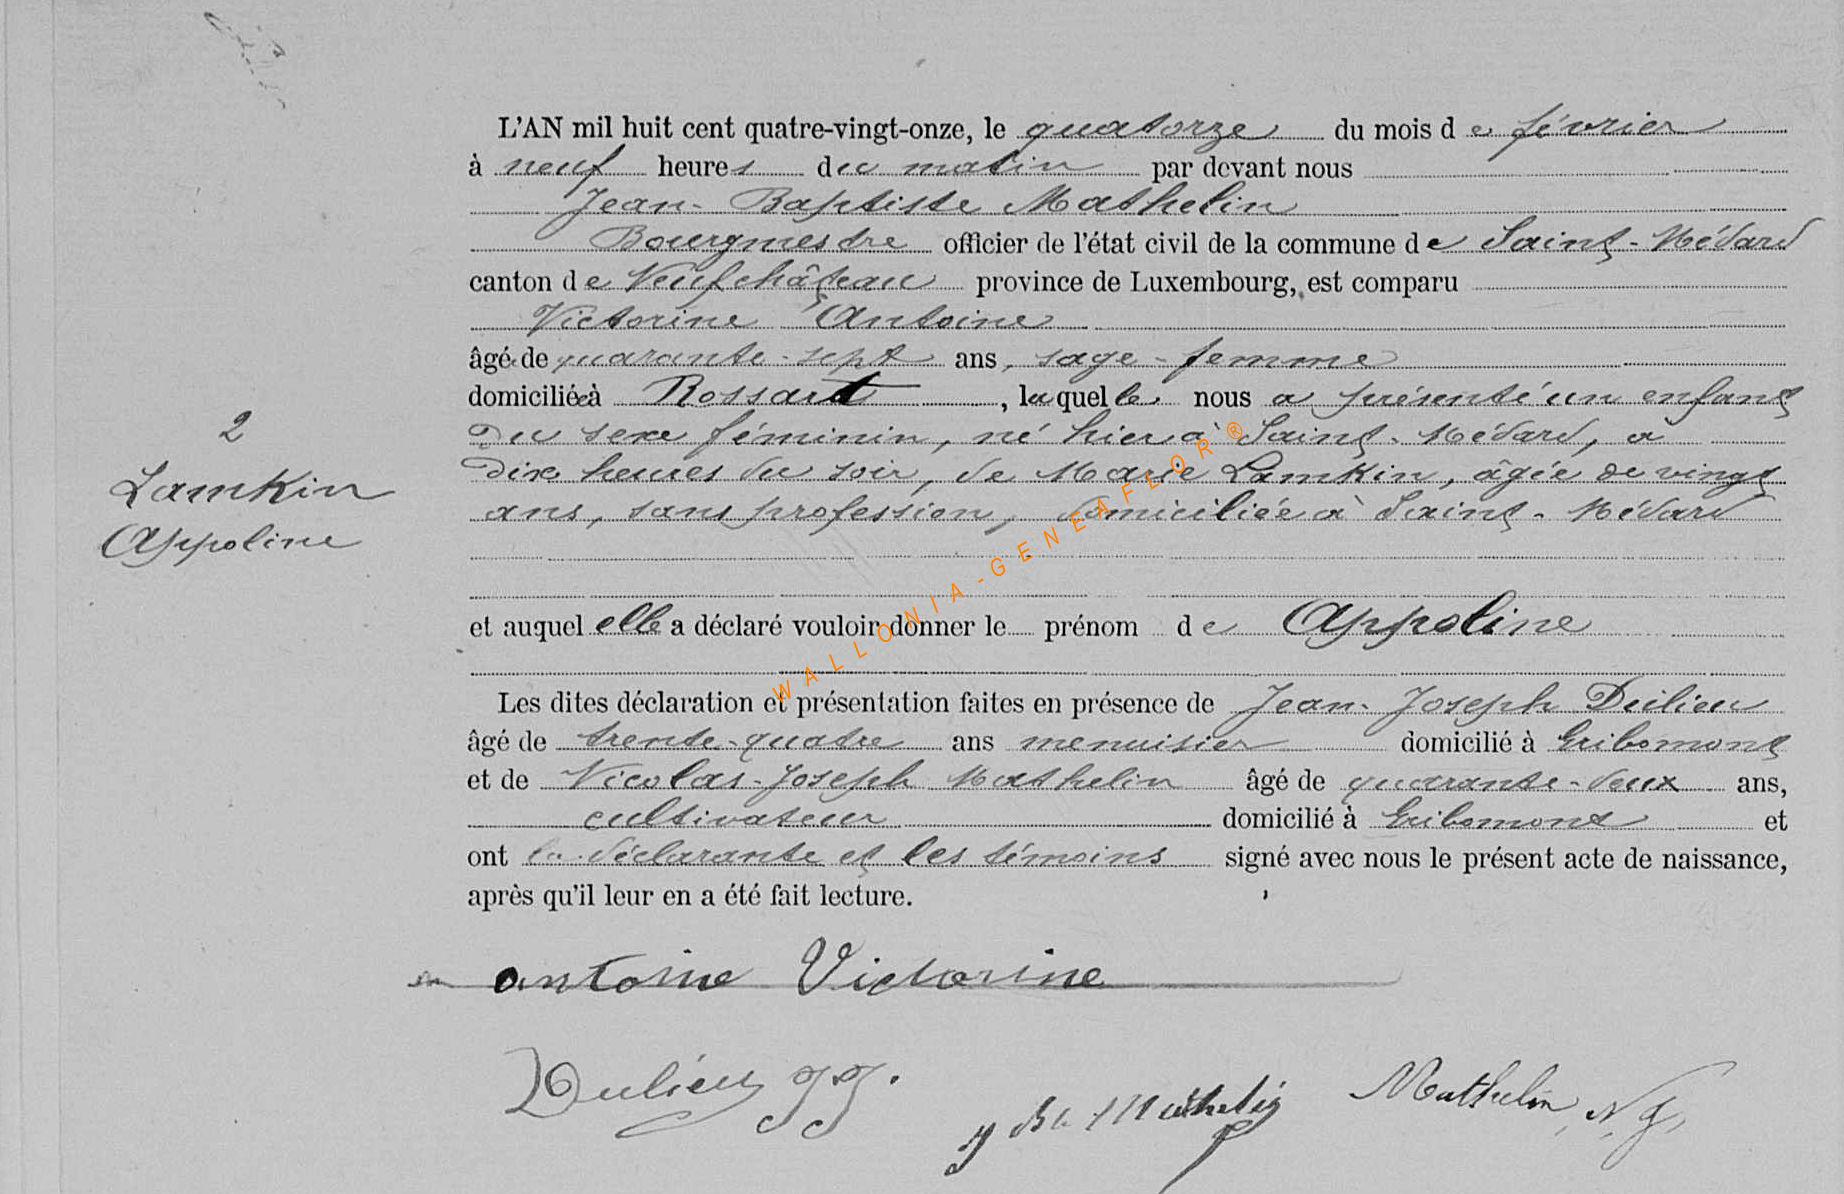 L'AN mil huit cent quatre-vingt-onze, le quatorze du mois de février
à neuf heures du matin par devant nous
Jean-Baptiste Mathelin
Bourgmestre officier de l'état civil de la commune de Saint-Médard
canton de Neufchâteau province de Luxembourg, est comparu
Victorine Antoine
âgée de quarante-sept ans, sage-femme
domiciliée à Rossart, laquelle nous a présenté un enfant
2
du sexe féminin, né hier à Saint-Médard, à
Lamkin
dix heures du soir, de Marie Lamkin, âgée de vingt
ans, sans profession, domiciliée à Saint-Médard
Appoline
WALLONIA-GENEAFLOR®
et auquel elle a déclaré vouloir donner le prénom de Appoline
Les dites déclaration et présentation faites en présence de Jean-Joseph Dulieu
âgé de trente-quatre ans menuisier domicilié à Gribomont
et de Nicolas-Joseph Mathelin âgé de quarante-deux ans,
cultivateur domicilié à Gribomont et
ont la déclarante et les témoins signé avec nous le présent acte de naissance,
après qu'il leur en a été fait lecture.
antoine Victorine
Dulieu J.J.
J Bte Mathelin
Mathelin, N. J.